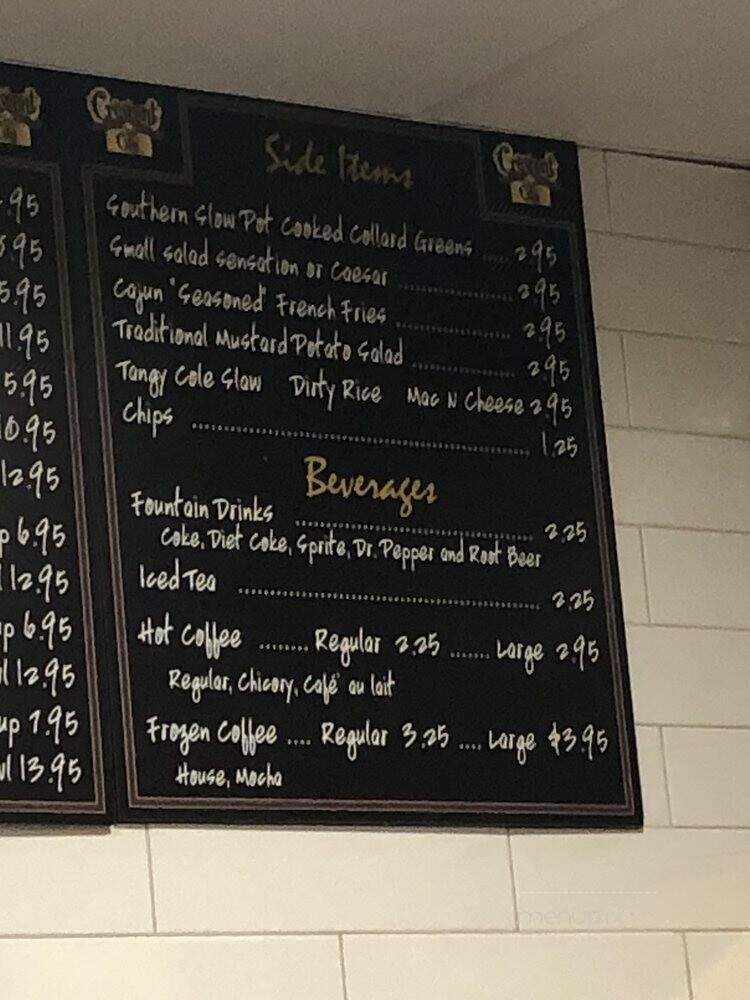 Side Items
Southern Slow Pot Cooked Collard Greens .... 2.95
Small salad sensation or Caesar .................... 2.95
Cajun "Seasoned" French Fries .................... 2.95
Traditional Mustard Potato Salad .................. 2.95
Tangy Cole Slaw Dirty Rice Mac N Cheese 2.95
Chips .................................................. 1.25
Beverages
Fountain Drinks ........................................ 2.25
Coke, Diet Coke, Sprite, Dr. Pepper and Root Beer
Iced Tea .................................................. 2.25
Hot Coffee ........ Regular 2.25 ....... Large 2.95
Regular, Chicory, Café au lait
Frozen Coffee .... Regular 3.25 .... Large $3.95
House, Mocha
.95
.95
5.95
11.95
5.95
10.95
12.95
p 6.95
l 12.95
up 6.95
l 12.95
up 7.95
wl 13.95